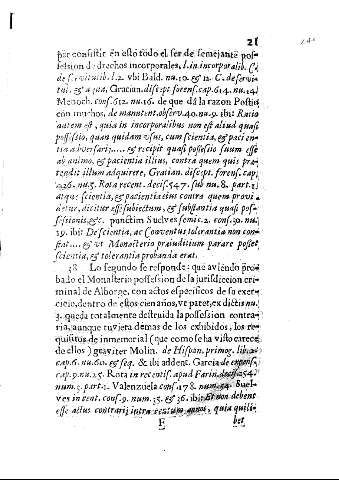 21
por consistir en esto todo el ser de semejante pos-
session de drechos incorporales, l. in incorporalib. C.
de servitutib. l.2. ubi Bald. nu.10. & 12. C. de servi-
tut. & aqua, Gratian. discept. forens. cap. 614. nu. 14.
Menoch. cons. 612. nu.16. de que dà la razon Postio
con muchos, de manutent. obser. 40. nu.9. ibi: Ratio
autem est, quia in incorporalibus non est aliud quasi
possessio, quam quidam usus, cum scientia, & patien-
tia adversarij:.... & recipit quasi possessio suum esse
ab animo, & patientia illius, contra quem quis præ-
tendit illum adquirere, Gratian. discept. forens. cap.
226. nu.5. Rota recent. decis. 547. sub nu.8. part.1.
atque scientia, & patientia eius contra quem provi-
detur, dicitur esse subiectum, & substantia quasi pos-
sessionis, &c. punctim Suelves semic. 2. cons. 30. nu.
19. ibi: De scientia, ac Conventus tolerantia non con-
stat.... & ut Monasterio præiuditium parare posset
scientia, & tolerantia probanda erat.
38 Lo segundo se responde: que aviendo pro-
bado el Monasterio possession de la jurisdiccion cri-
minal de Alborge, con actos especificos de su exer-
cicio, dentro de estos cien años, ut patet, ex dictis nu.
3. queda totalmente destruida la possession contra-
ria, aunque tuviera demàs de los exhibidos, los re-
quisitos de inmemorial (que como se ha visto carece
de ellos) graviter Molin. de Hispan. primog. lib. 2.
cap. 6. nu. 60. & seq. & ibi addent. Garcia de expens.
cap. 9. nu. 25. Rota in recentis. apud Farin. decis. 254.
num. 3. part. 1. Valenzuela cons. 178. num. 34. Suel-
ves in cent. cons. 9. num. 35. & 36. ibi: Et non debent
esse actus contrarij intra centum annos, quia quili-
F bet